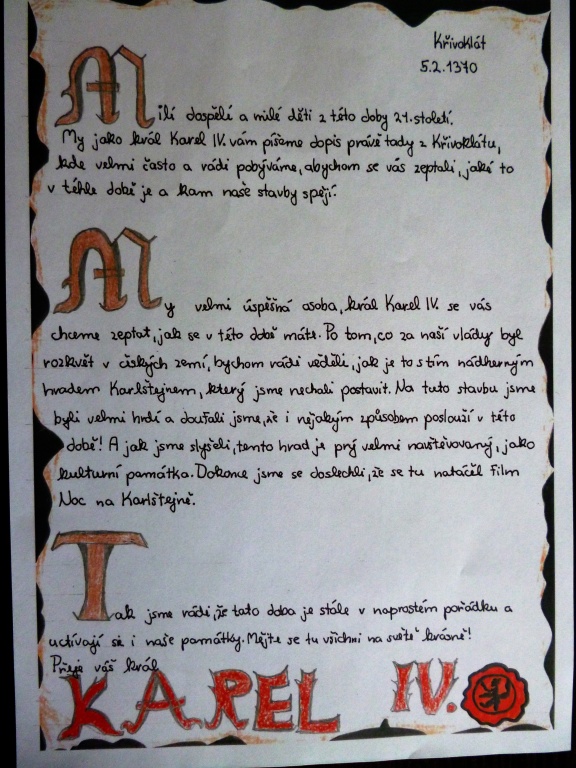 Křivoklát
5.2.1370
Milí dospělí a milé děti z této doby 21.století.
My jako král Karel IV. vám píšeme dopis právě tady z Křivoklátu,
kde velmi často a rádi pobýváme, abychom se vás zeptali, jaké to
v téhle době je a kam naše stavby spějí.
My velmi úspěšná osoba, král Karel IV. se vás
chceme zeptat, jak se v této době máte. Po tom, co za naší vlády byl
rozkvět v českých zemí, bychom rádi věděli, jak je to s tím nádherným
hradem Karlštejnem, který jsme nechali postavit. Na tuto stavbu jsme
byli velmi hrdí a doufali jsme, že i nějakým způsobem poslouží v této
době! A jak jsme slyšeli, tento hrad je prý velmi navštěvovaný, jako
kulturní památka. Dokonce jsme se doslechli, že se tu natáčel film
Noc na Karlštejně.
Tak jsme rádi, že tato doba je stále v naprostém pořádku a
uctívají se i naše památky. Mějte se tu všichni na světě krásně!
Přeje váš král
KAREL IV.